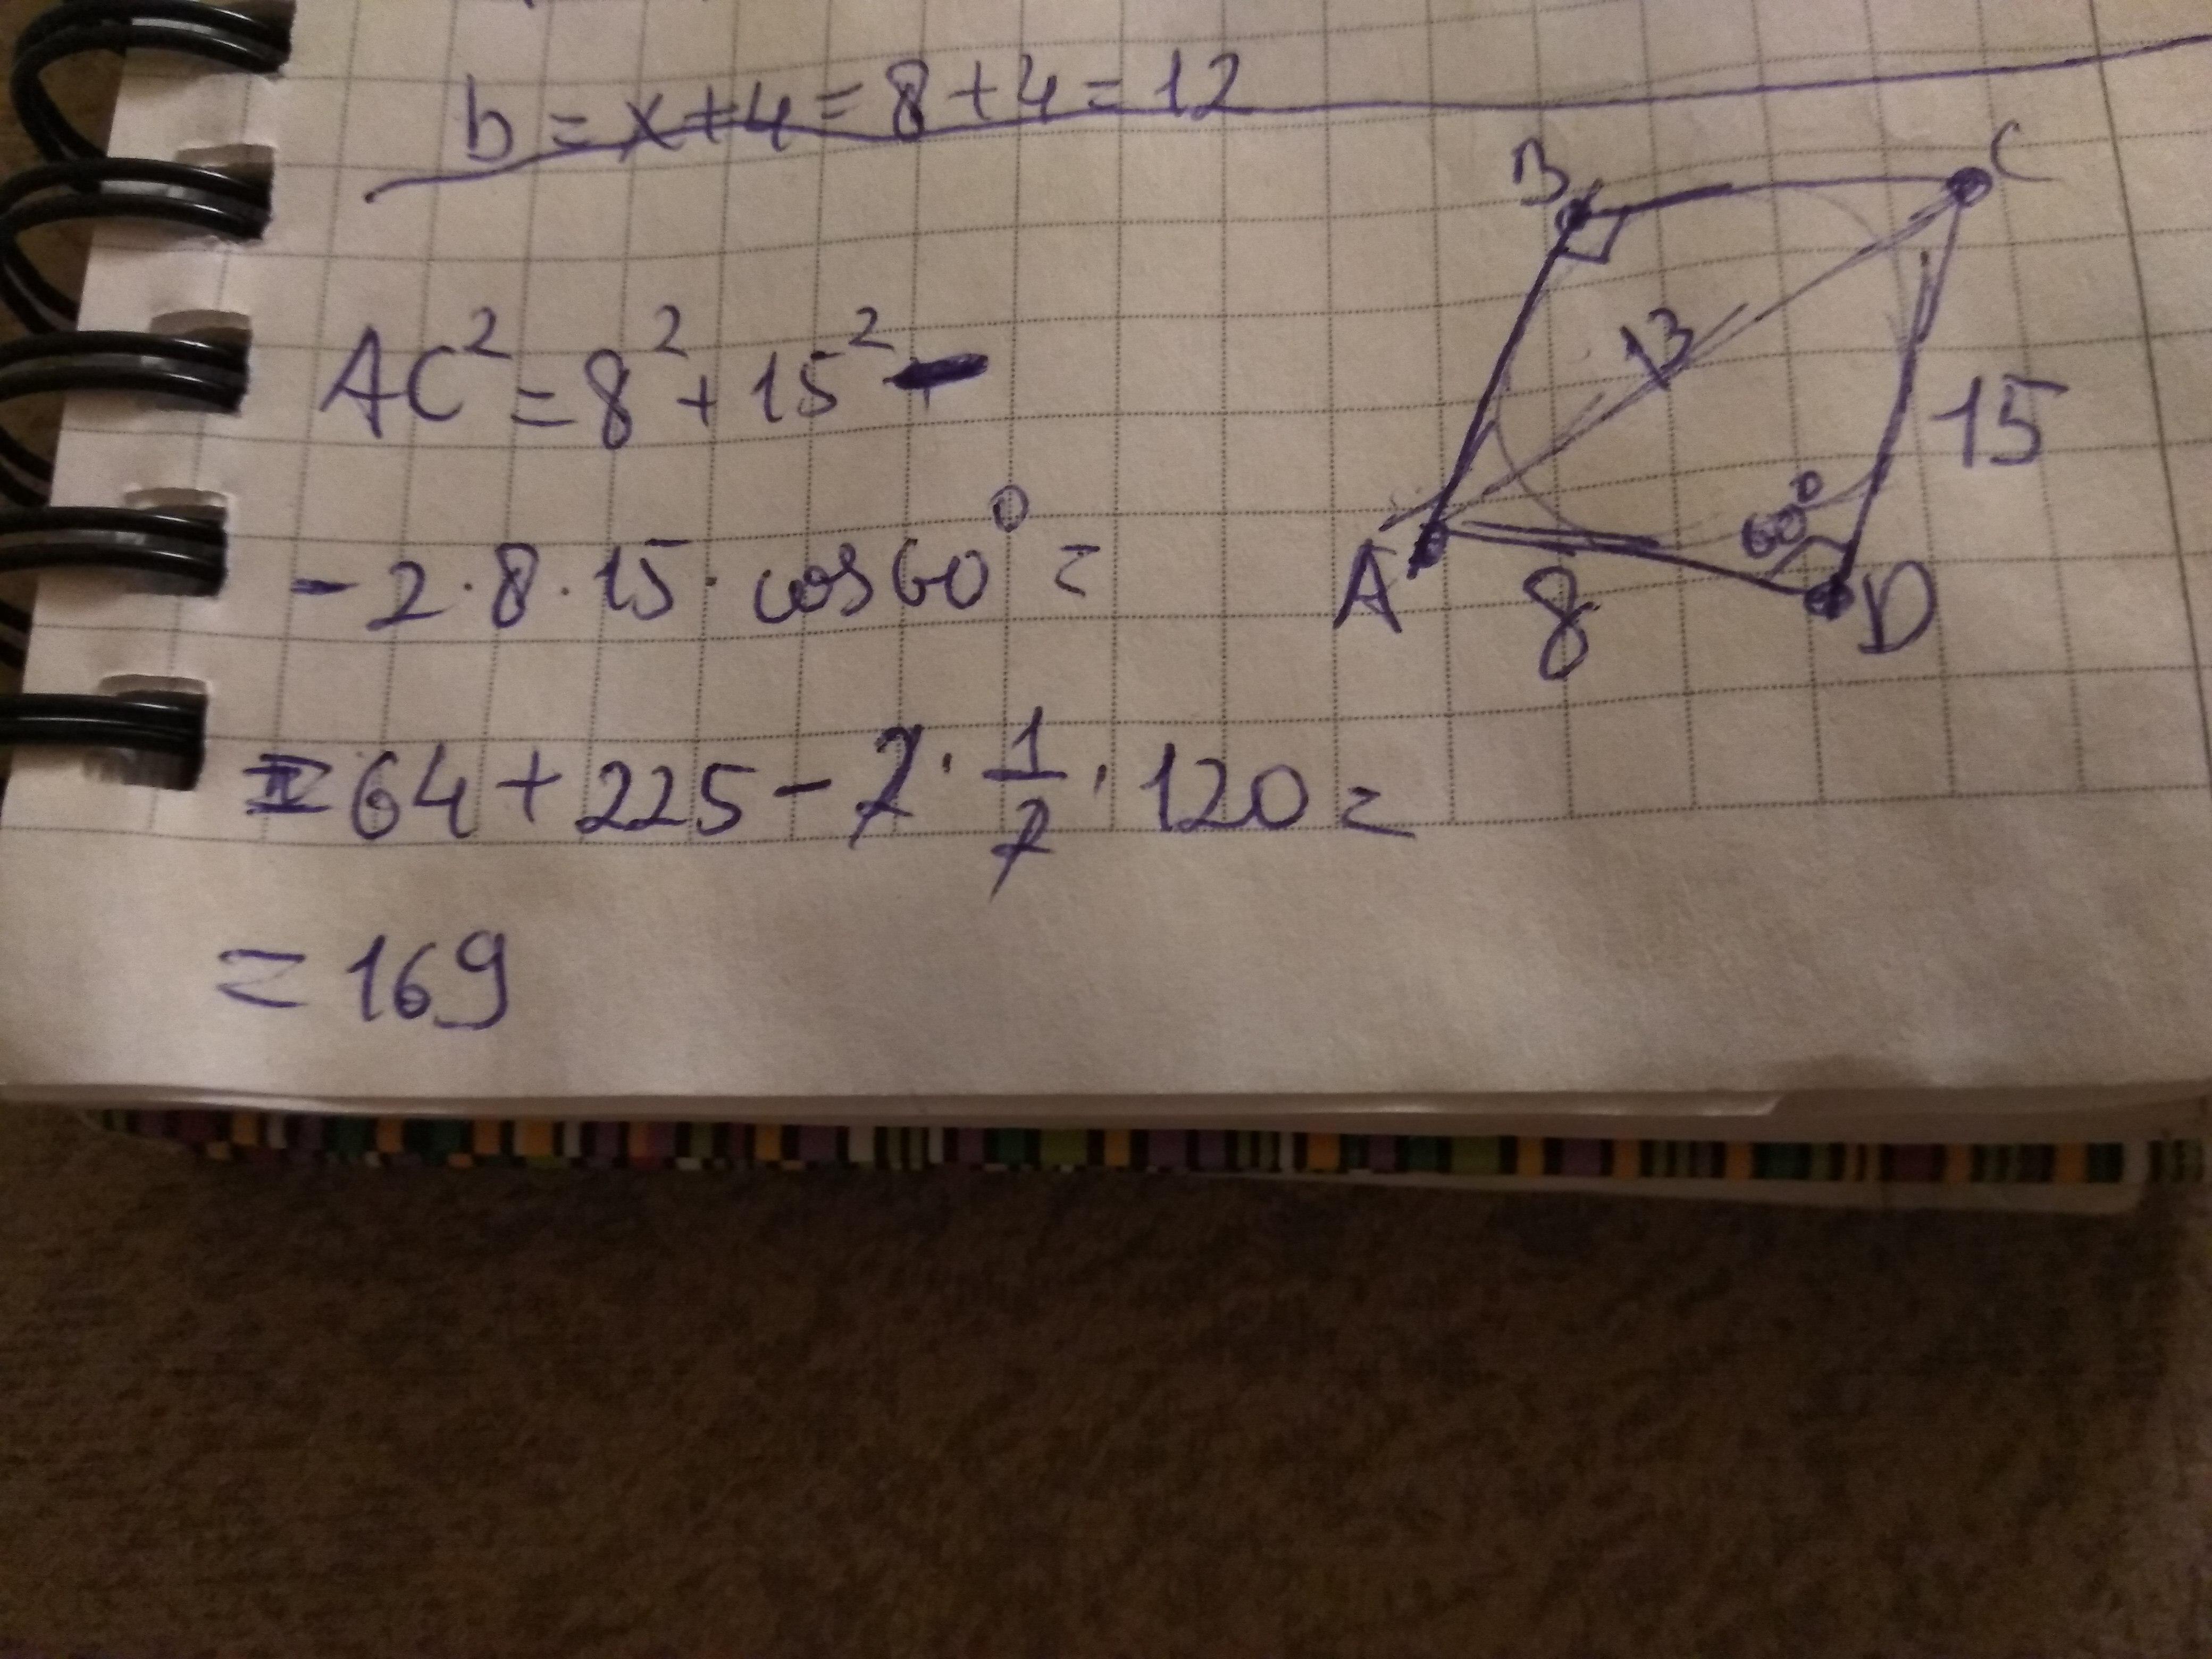 b = x + 4 = 8 + 4 = 12
AC² = 8² + 15² -
- 2 · 8 · 15 · cos 60° =
= 64 + 225 - 2 · 1/2 · 120 =
= 169
B
C
13
15
60°
A
8
D